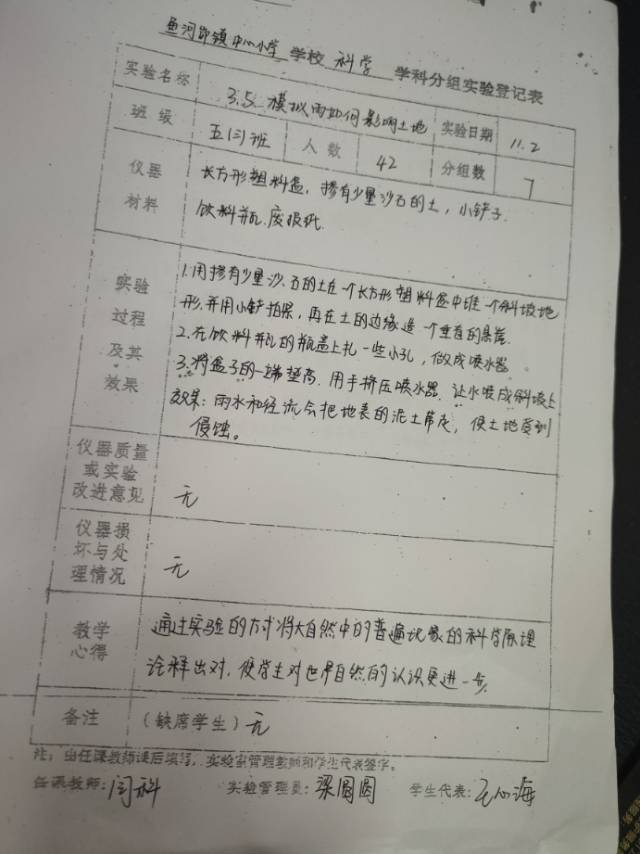 鱼河峁镇中心小学 学校 科学 学科分组实验登记表
实验名称 3.5 模拟雨如何影响土地 实验日期 11.2
班级 五(3)班 人数 42 分组数 7
仪器材料 长方形塑料盒、掺有少量沙石的土,小铲子
饮料瓶、废报纸
实验过程及其效果 1.用掺有少量沙、石的土在一个长方形塑料盒中堆一个斜坡地
形,并用小铲拍紧,再在土的边缘造一个垂直的悬崖
2.在饮料瓶的瓶盖上扎一些小孔,做成喷水器
3.将盒子的一端垫高,用手挤压喷水器,让水喷成斜坡上
效果:雨水和径流会把地表的泥土带走,使土地受到
侵蚀。
仪器质量或实验改进意见 无
仪器损坏与处理情况 无
教学心得 通过实验的方式将大自然中的普遍现象的科学原理
诠释出对,使学生对世界自然的认识更进一步
备注 (缺席学生)无
注:由任课教师课后填写,实验室管理教师和学生代表签字。
任课教师:闫科 实验管理员:梁圆圆 学生代表:心海